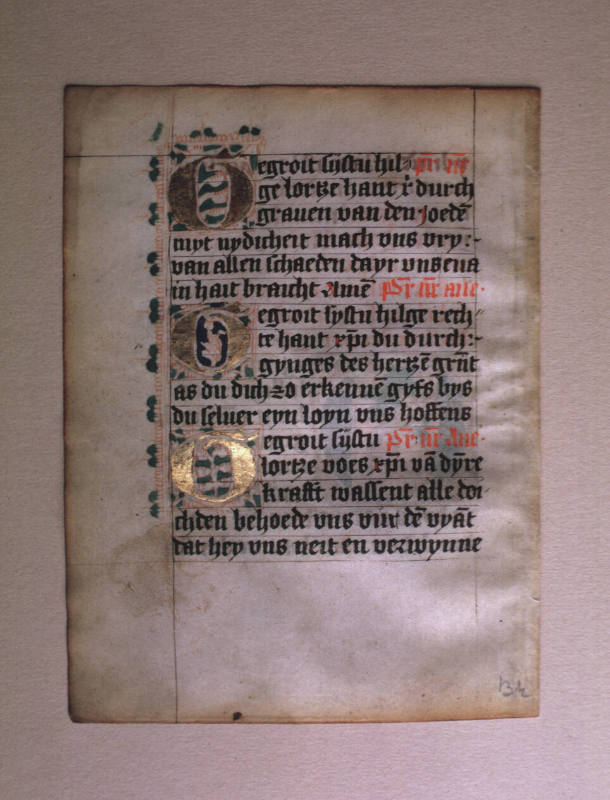 Gegroit sijstu hil- pr̄ nr̄
ge lortze hant x̄ durch
grauen van den Joedē
myt nydicheit mach vns vry:-
van allen schaeden dayr vnsena
in hait braicht Amē pr̄ nr̄ aue.
Gegroit sijstu hilge rech"
te hant xp̄i du durch:-
gynges des hertzē grūt
as du dich zo erkennē gyfs bys
du seluer eyn loyn vns hoffens
Gegroit sijstu pr̄ nr̄ Aue.
lortze voes xp̄i vā dȳre
krafft wassent alle doi
chden behoede vns vur dē vyāt
dat hey vns neit en verwynne